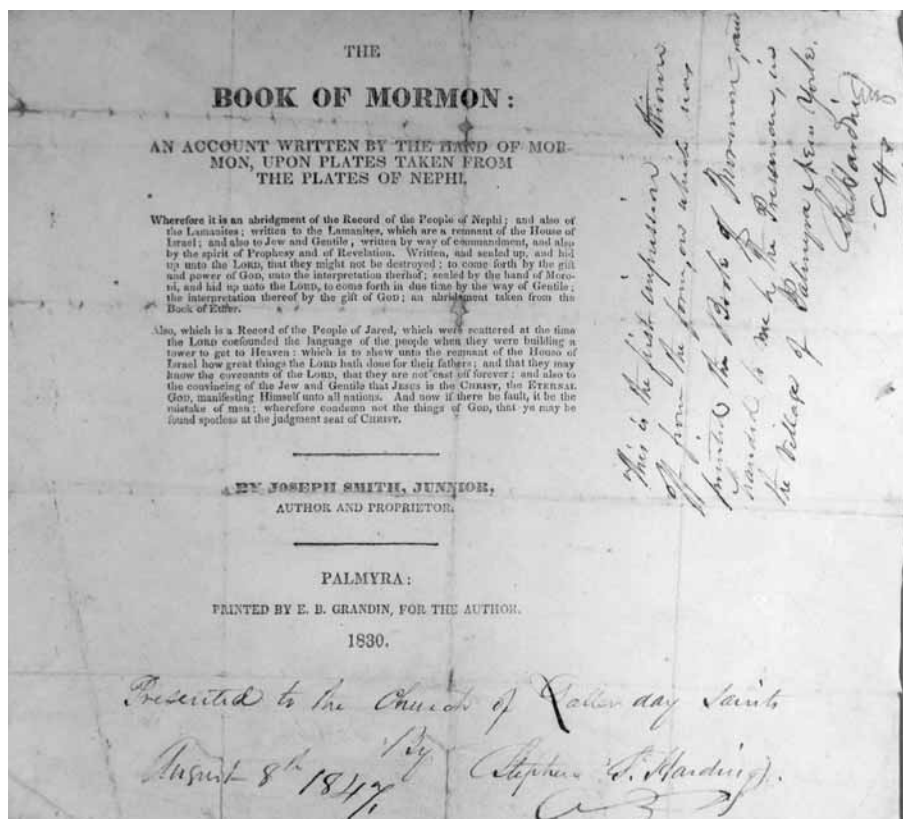 THE
BOOK OF MORMON:
AN ACCOUNT WRITTEN BY THE HAND OF MOR-
MON, UPON PLATES TAKEN FROM
THE PLATES OF NEPHI.
Wherefore it is an abridgment of the Record of the People of Nephi; and also of
the Lamanites; written to the Lamanites, which are a remnant of the House of
Israel; and also to Jew and Gentile, written by way of commandment, and also
by the spirit of Prophesy and of Revelation. Written, and sealed up, and hid
up unto the LORD, that they might not be destroyed; to come forth by the gift
and power of GOD, unto the interpretation therhof; sealed by the hand of Moro-
ni, and hid up unto the LORD, to come forth in due time by the way of Gentile;
the interpretation thereof by the gift of GOD; an abridgment taken from the
Book of Ether.
Also, which is a Record of the People of Jared, which were scattered at the time
the LORD confounded the language of the people when they were building a
tower to get to Heaven: which is to shew unto the remnant of the House of
Israel how great things the LORD hath done for their fathers; and that they may
know the covenants of the LORD, that they are not cast off forever; and also to
the convincing of the Jew and Gentile that JESUS is the CHRIST, the ETERNAL
GOD, manifesting Himself unto all nations. And now if there be fault, it be the
mistake of man; wherefore condemn not the things of GOD, that ye may be
found spotless at the judgment seat of CHRIST.
BY JOSEPH SMITH, JUNNIOR,
AUTHOR AND PROPRIETOR.
PALMYRA:
PRINTED BY E. B. GRANDIN, FOR THE AUTHOR.
1830.
Presented to the Church of Latter day Saints
By
August 8th 1847, Stephen S. Harding.
This is the first impression thrown
off from the form, on which was
printed the Book of Mormon, and
handed to me by the Pressman, in
the Village of Palmyra New York.
S. S. Harding